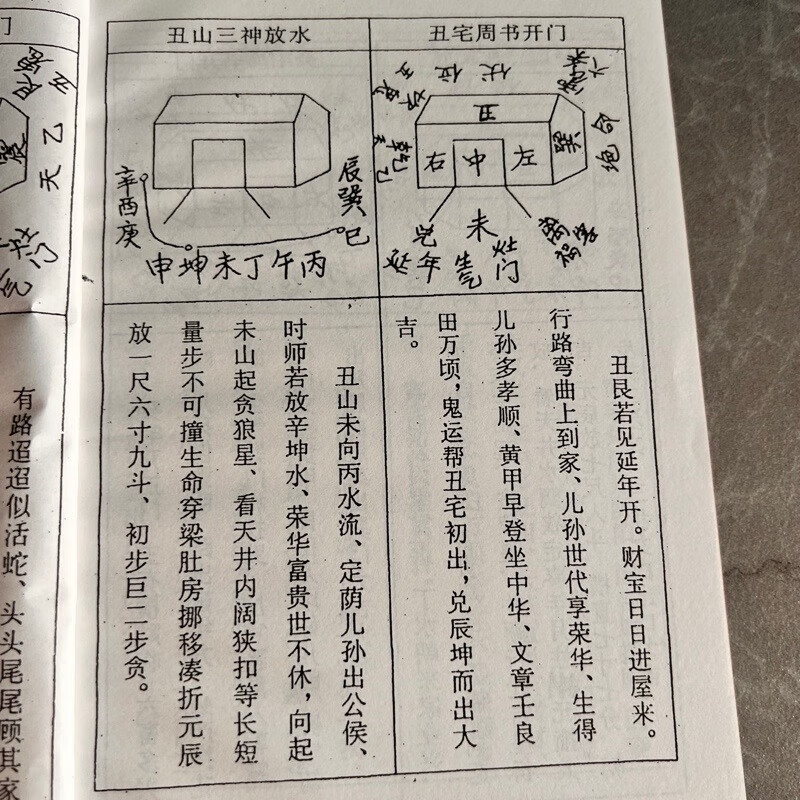 丑宅周书开门
丑山三神放水
伏位
六煞
绝命
丑
巽
右 中 左
兑 未 离
延年 生气 灶门 祸害
辛酉庚
辰巽巳
申坤未丁午丙
丑艮若见延年开。财宝日日进屋来。
行路弯曲上到家、儿孙世代享荣华、生得
儿孙多孝顺、黄甲早登坐中华、文章壬良
田万顷，鬼运帮丑宅初出，兑辰坤而出大
吉。
丑山未向丙水流、定荫儿孙出公侯、
时师若放辛坤水、荣华富贵世不休，向起
未山起贪狼星、看天井内阔狭扣等长短
量步不可撞生命穿梁肚房挪移凑折元辰
放一尺六寸九斗、初步巨二步贪。
门
艮
天乙
巽
门放
有路迢迢似活蛇、头头尾尾顾其家